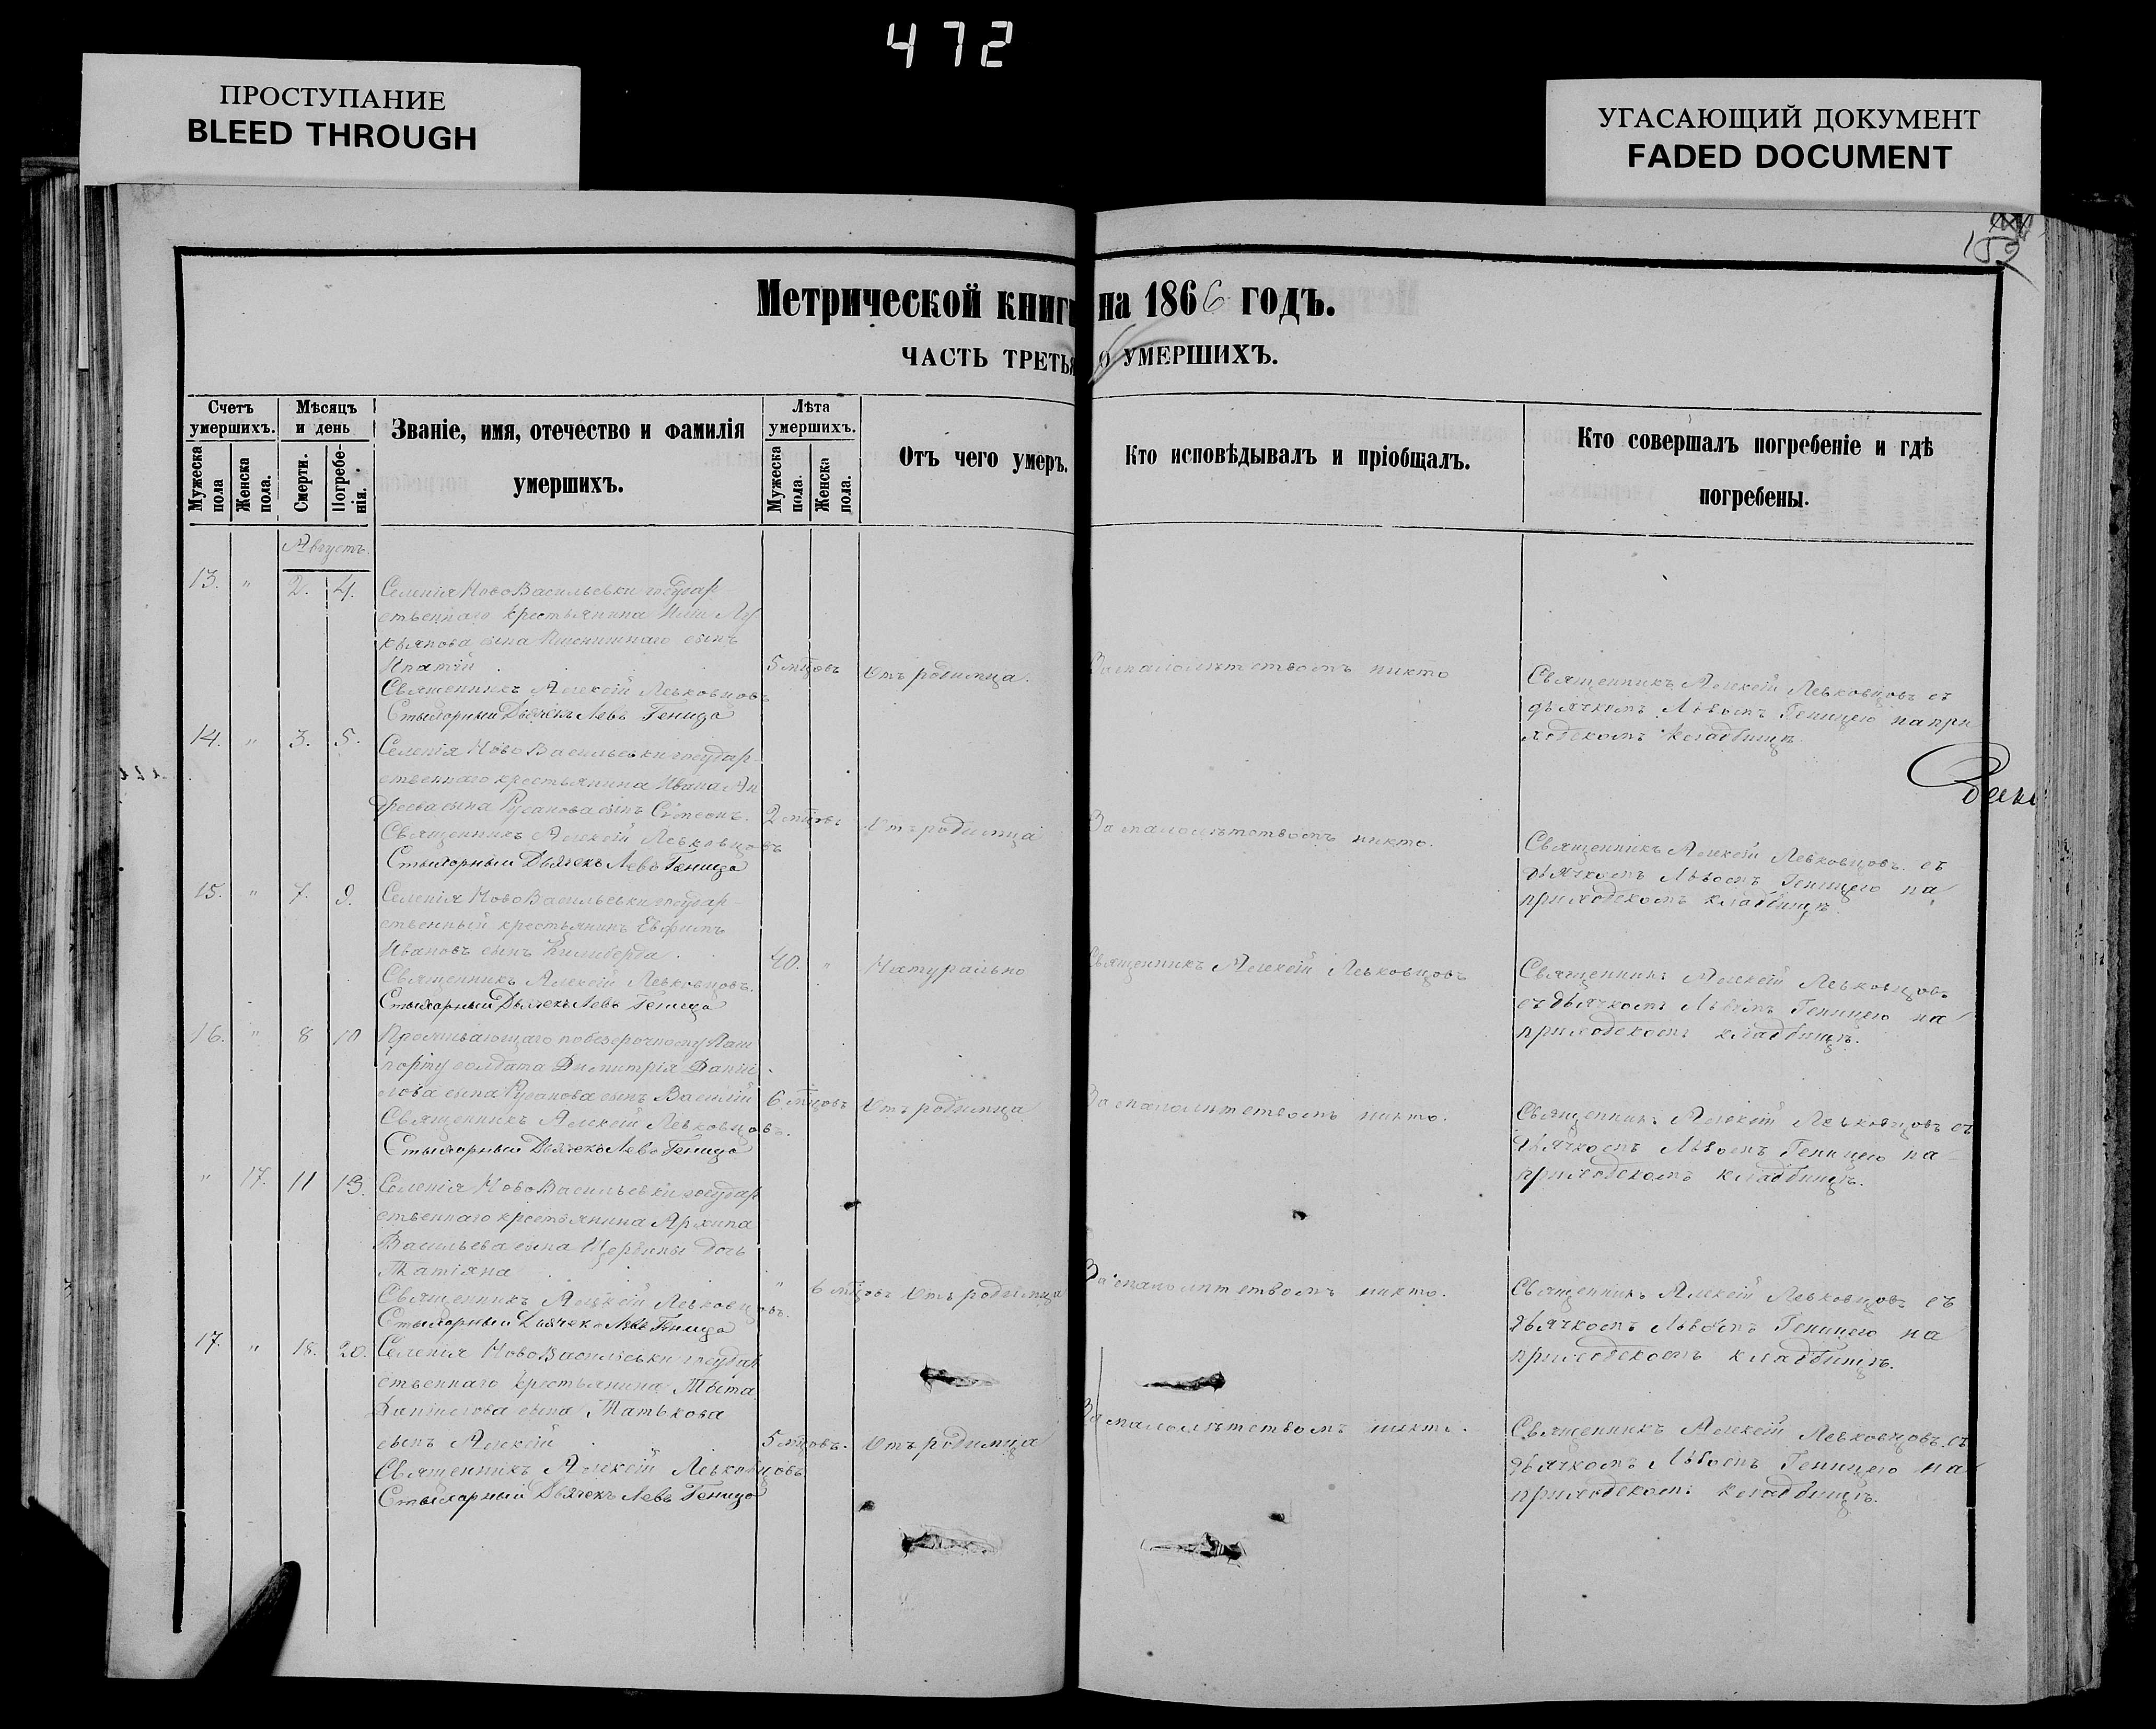 472
ПРОСТУПАНИЕ
BLEED THROUGH
УГАСАЮЩИЙ ДОКУМЕНТ
FADED DOCUMENT
Метрической книги на 1866 годъ.
ЧАСТЬ ТРЕТЬЯ О УМЕРШИХЪ.
Счетъ умершихъ.
Мужеска пола
Женска пола.
Мѣсяцъ и день
Смерти.
Погребенія.
Званіе, имя, отечество и фамилія умершихъ.
Лѣта умершихъ.
Мужеска пола.
Женска пола.
Отъ чего умеръ.
Кто исповѣдывалъ и пріобщалъ.
Кто совершалъ погребеніе и гдѣ погребены.
Августъ.
13. " 2. 4. Селенія НовоВасильевки государ
ственнаго крестьянина Лу
кьянова сына сынъ
Ипатій
5 мцовъ Отъ родимца. За малолѣтствомъ никто
Священникъ Алексій Левковцовъ
Стихарный Дьячекъ Левъ Геница
Священникъ Алексій Левковцовъ съ
дьячкомъ Львомъ Геницею на при
ходскомъ кладбищѣ.
14. " 3. 5. Селенія НовоВасильевки государ
ственнаго крестьянина Ивана Ан
дреева сына Русанова сынъ Симеонъ. 2 мцовъ Отъ родимца За малолѣтствомъ никто.
Священникъ Алексій Левковцовъ
Стихарный Дьячекъ Левъ Геница
Священникъ Алексій Левковцовъ съ
дьячкомъ Львомъ Геницею на
приходскомъ кладбищѣ.
15. " 7. 9. Селенія НовоВасильевки государ
ственный крестьянинъ Евфимъ
Ивановъ сынъ
40. " Натурально Священникъ Алексій Левковцовъ
Священникъ Алексій Левковцовъ.
Стихарный Дьячекъ Левъ Геница
Священникъ Алексій Левковцовъ
съ дьячкомъ Львомъ Геницею на
приходскомъ кладбищѣ.
16. " 8 10 Проживающаго по безсрочному Паш
порту солдата Димитрія Даніи
лова сына Русанова сынъ Василій 6 мцовъ Отъ родимца За малолѣтствомъ никто.
Священникъ Алексій Левковцовъ.
Стихарный Дьячекъ Левъ Геница
Священникъ Алексій Левковцовъ съ
дьячкомъ Львомъ Геницею на
приходскомъ кладбищѣ.
" 17. 11 13. Селенія НовоВасильевки государ
ственнаго крестьянина Архипа
Васильева сына Щербины дочь
Татіяна
" 6 мцовъ Отъ родимца За малолѣтствомъ никто.
Священникъ Алексій Левковцовъ.
Стихарный Дьячекъ Левъ Геница
Священникъ Алексій Левковцовъ съ
дьячкомъ Львомъ Геницею на
приходскомъ кладбищѣ.
17. " 18. 20. Селенія НовоВасильевки государ
ственнаго крестьянина Тита
Даніилова сына Татькова
сынъ Алексій
5 мцовъ. Отъ родимца За малолѣтствомъ никто.
Священникъ Алексій Левковцовъ
Стихарный Дьячекъ Левъ Геница
Священникъ Алексій Левковцовъ съ
дьячкомъ Львомъ Геницею на
приходскомъ кладбищѣ.